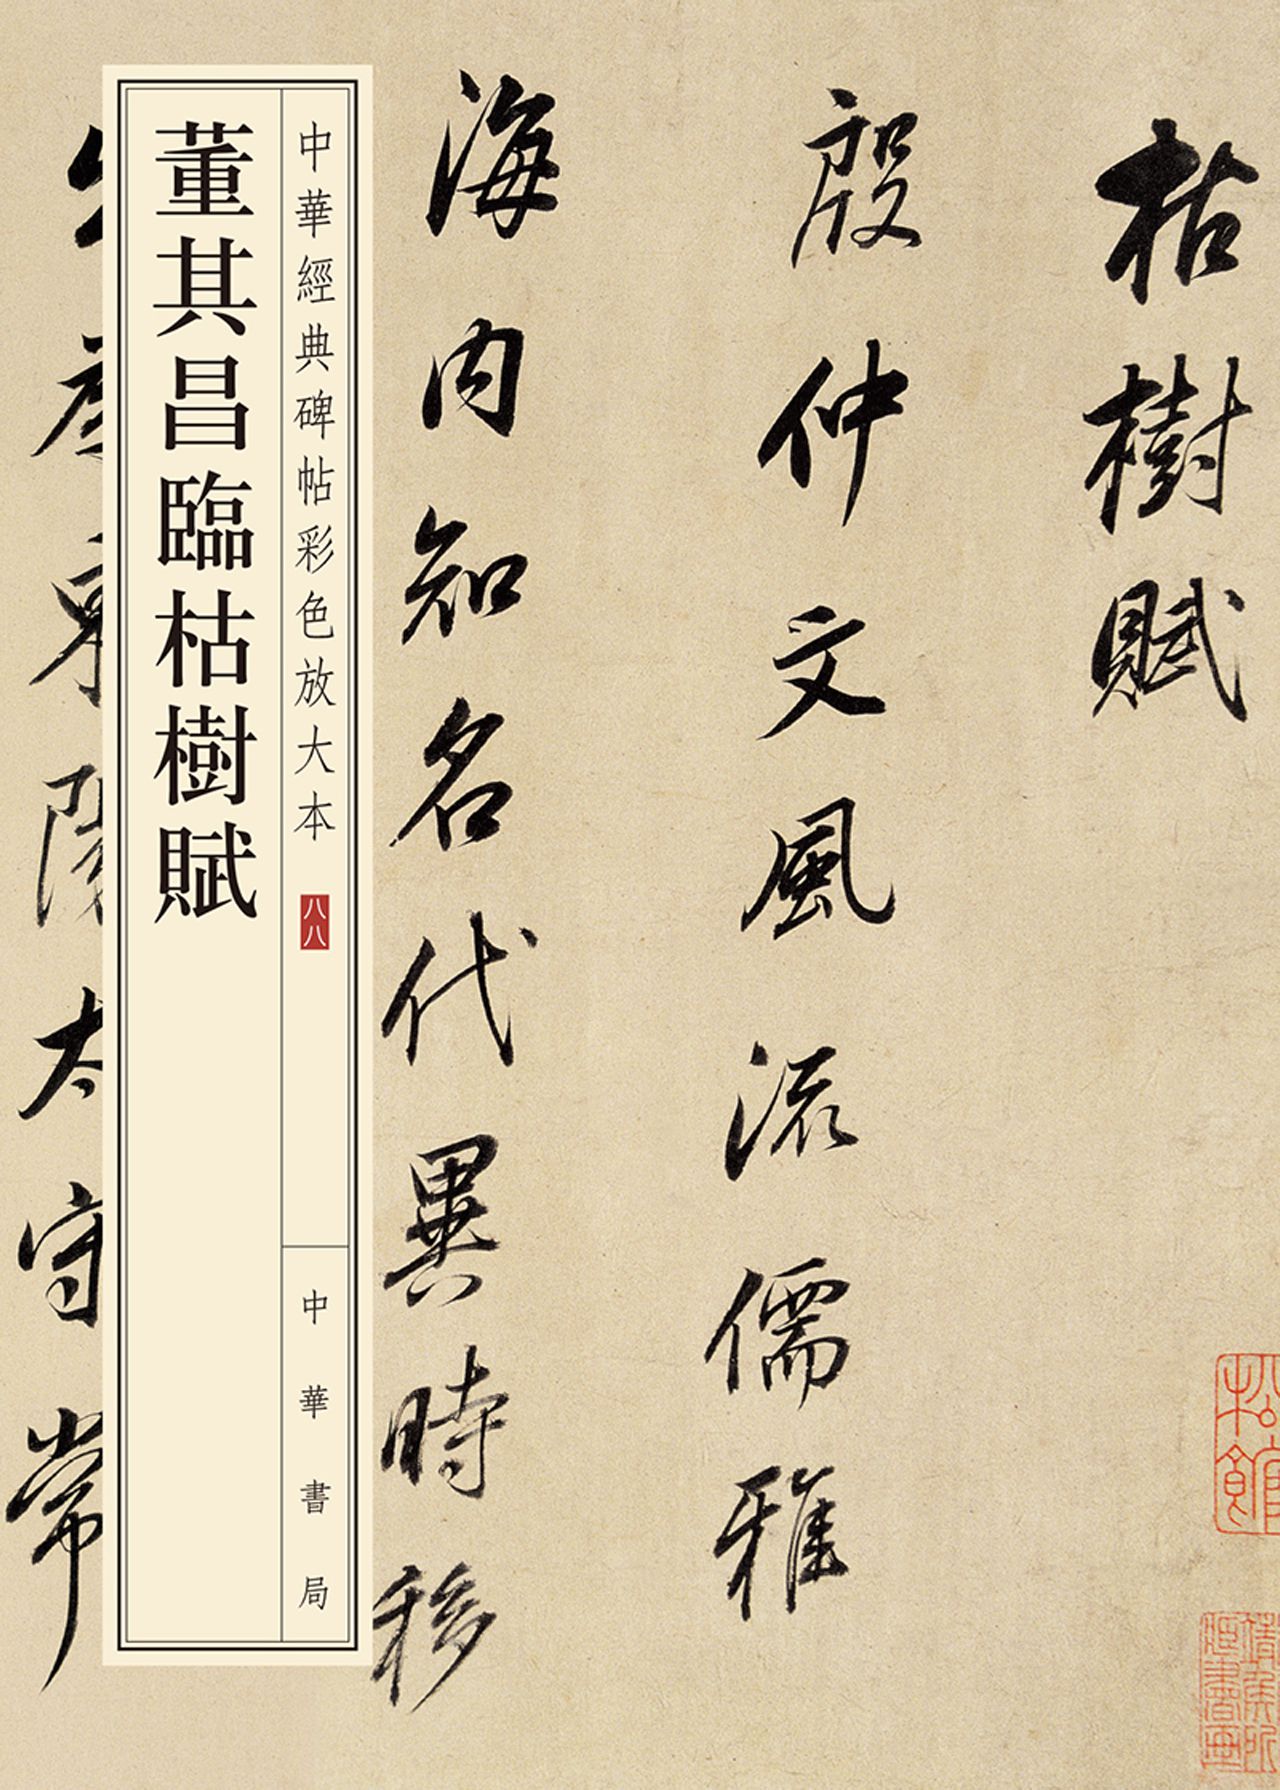 枯樹賦
殷仲文風流儒雅
海内知名代異時移
中華經典碑帖彩色放大本
八八
中華書局
董其昌臨枯樹賦
東陽太守常